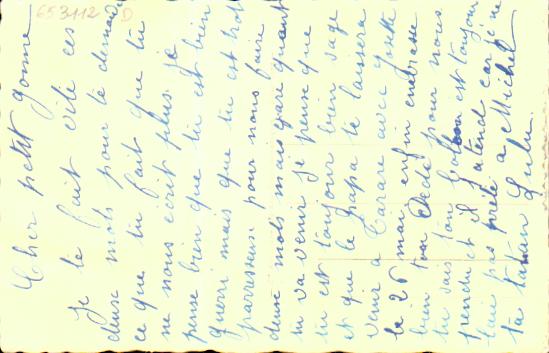 Cher petit gonne
je te fait vite ces
deux mots pour te demander
ce que tu fait que tu
ne nous ecrit plus. je
pense bien que tu est bien
gueri mais que tu est trot
parresseux pour nous faire
deux mots mais gare quant
tu va venir je pense que
tu est toujour bien sage
et que le papa te laissera
venir a Tarare avec
le 26 mai enfin embrasse
bien ton Dédé pour nous
tu sais ton est toujour
pendu et il t'atend car je ne
l'aie pas prété a Michel
ta tatan Lulu.
653112 D